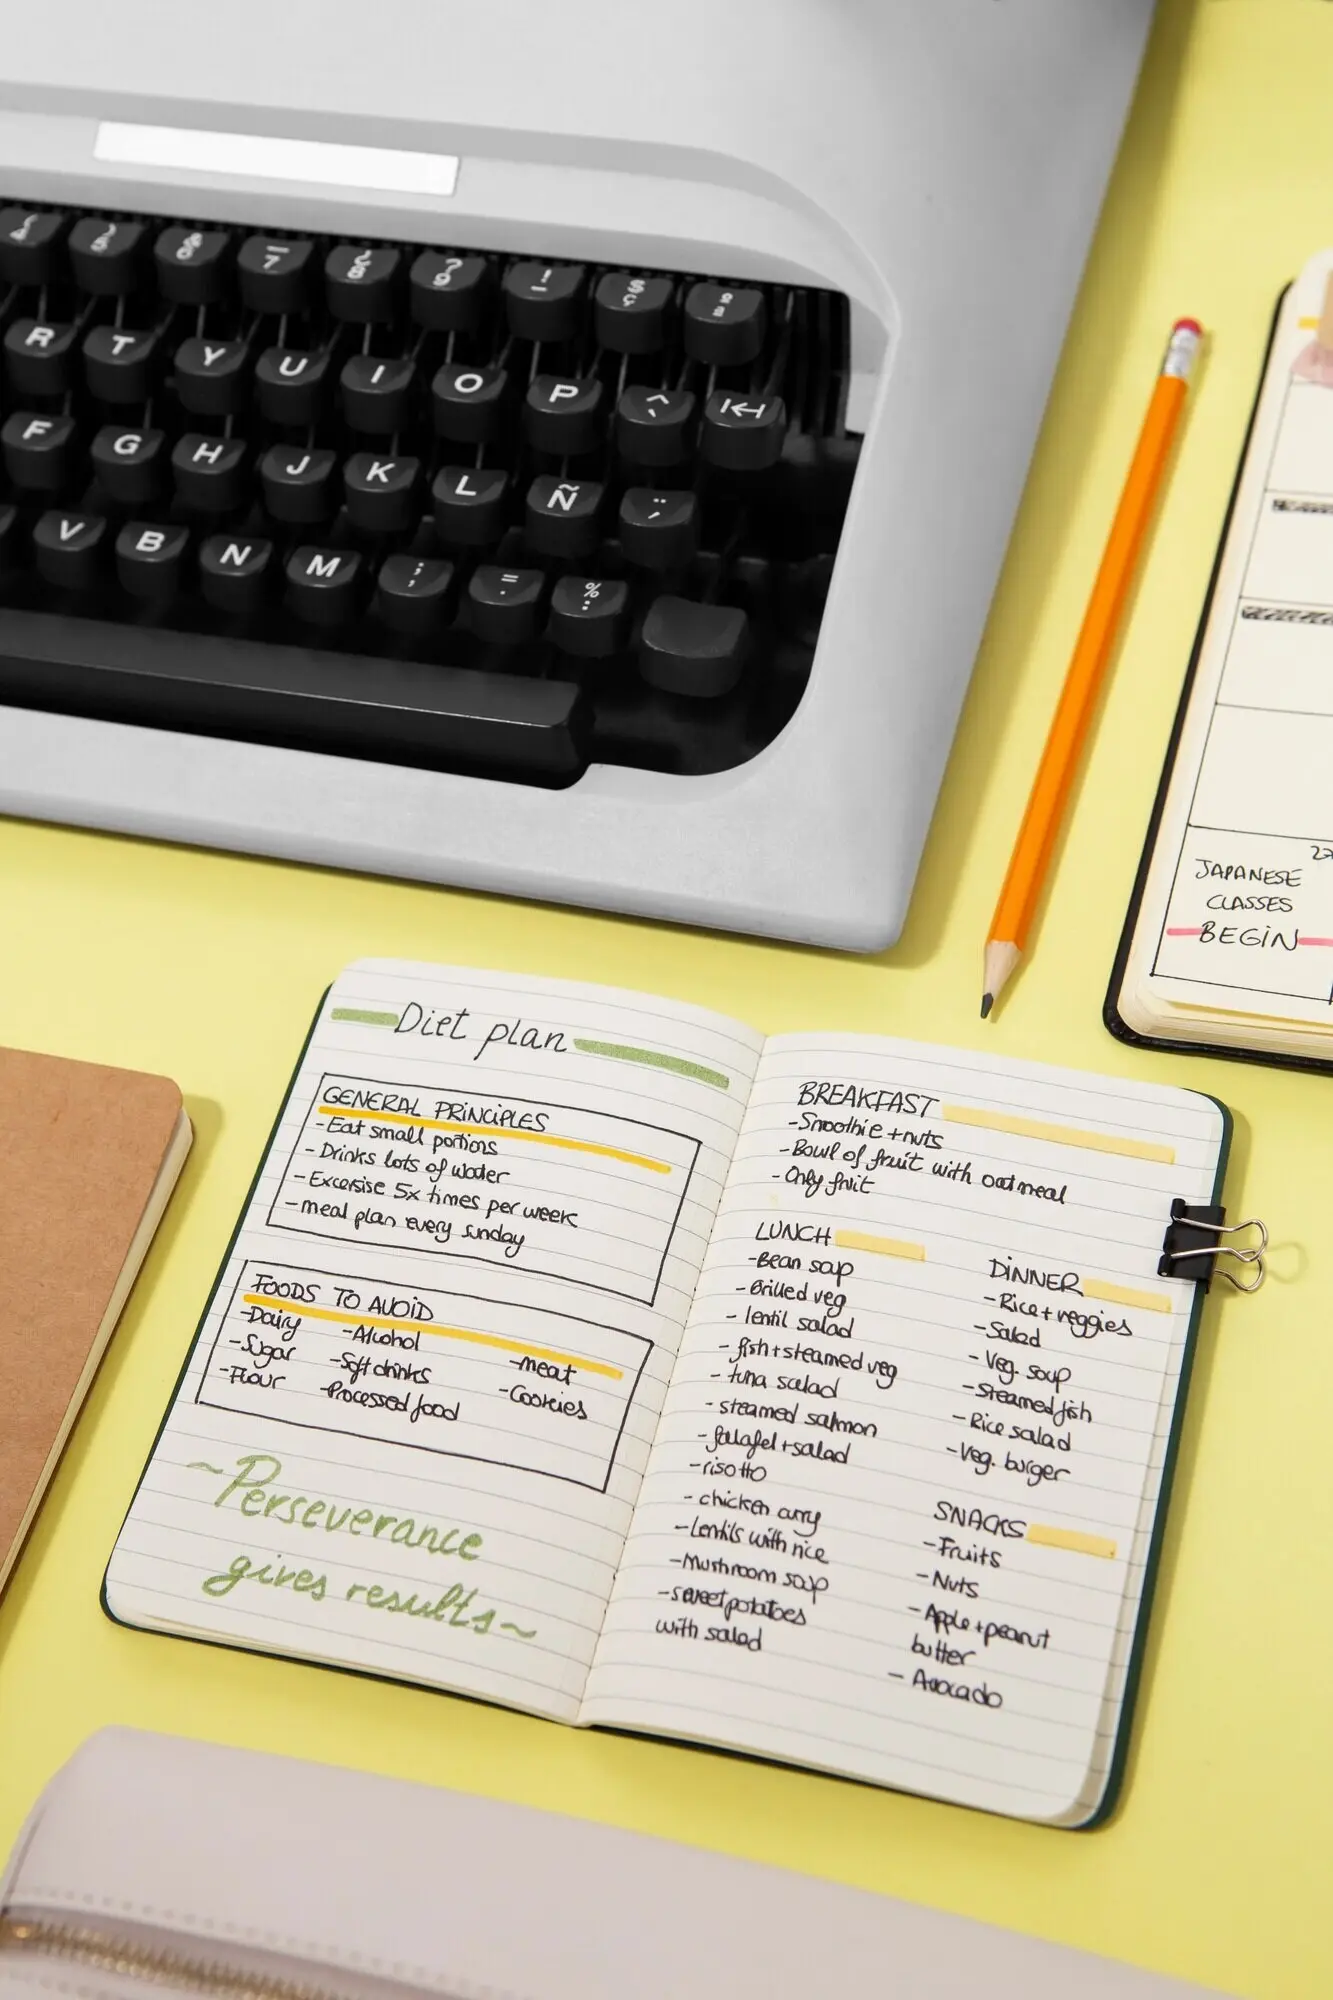 R T Y U I O P
F G H J K L Ñ
V B N M
JAPANESE
CLASSES
BEGIN
Diet plan
GENERAL PRINCIPLES
-Eat small portions
-Drinks lots of water
-Excersise 5x times per week
-meal plan every sunday
FOODS TO AVOID
-Dairy -Alcohol -meat
-Sugar -Soft drinks -Cookies
-Flour -Processed food
~Perseverance
gives results~
BREAKFAST
-Smoothie + nuts
-Bowl of fruit with oatmeal
-Only fruit
LUNCH
-Bean soup
-Grilled veg
-lentil salad
-fish + steamed veg
-tuna salad
-steamed salmon
-falafel + salad
-risotto
-chicken curry
-Lentils with rice
-Mushroom soup
-sweet potatoes
with salad
DINNER
-Rice + veggies
-Salad
-Veg. soup
-Steamed fish
-Rice salad
-Veg. burger
SNACKS
-Fruits
-Nuts
-Apple + peanut
butter
-Avocado